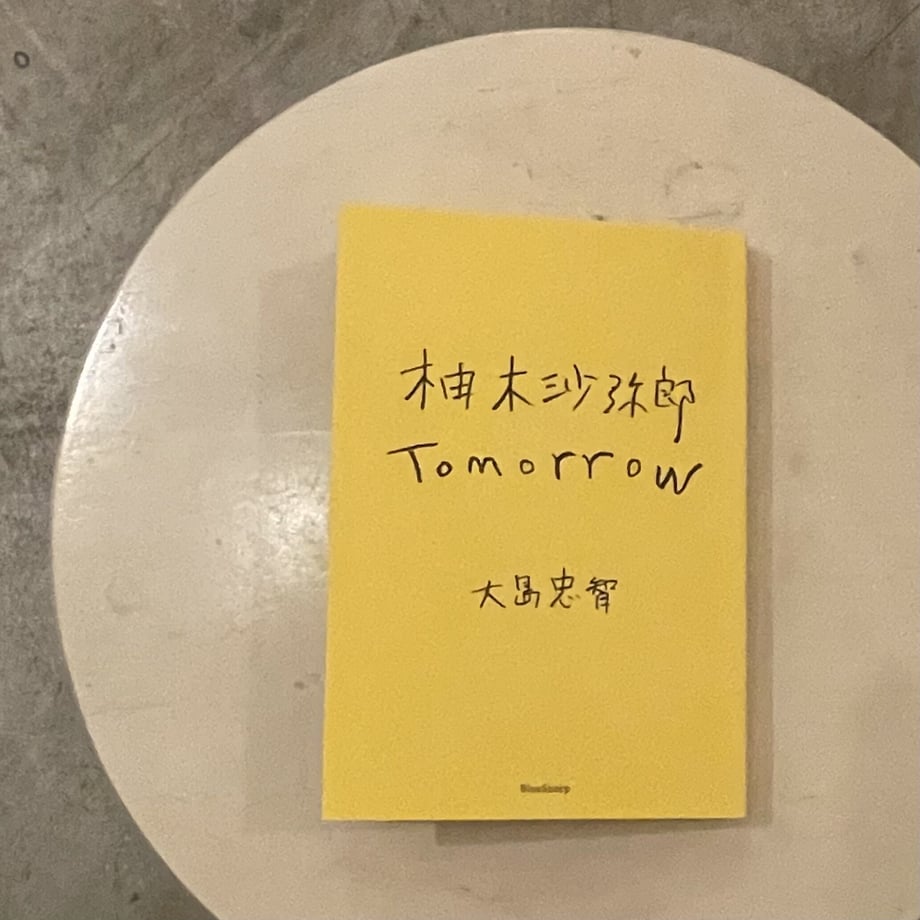 柚木沙弥郎
Tomorrow
大島忠智
BlueSheep